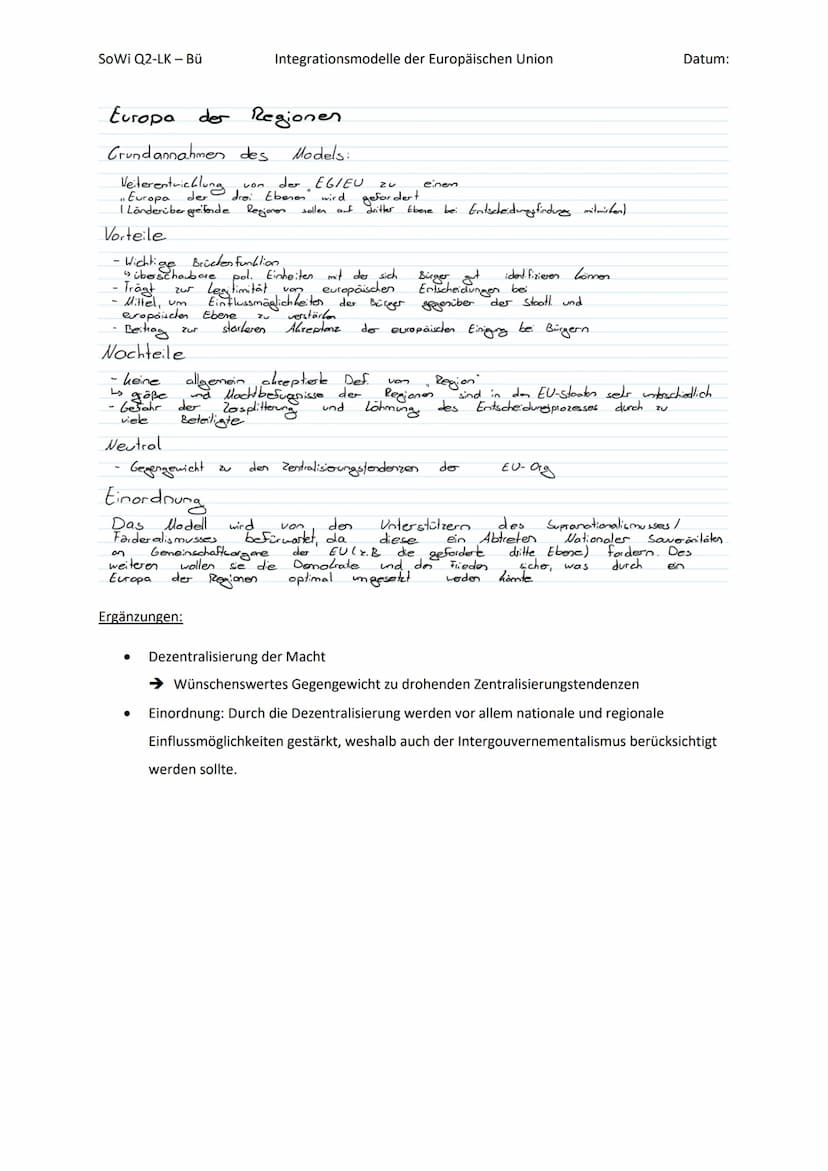 SoWi Q2-LK – Bü Integrationsmodelle der Europäischen Union Datum:
Europa der Regionen
Grundannahmen des Models:
Weiterentwicklung von der EG/EU zu einem
"Europa der drei Ebenen" wird gefordert
(Länderübergreifende Regionen sollen auf dritter Ebene bei Entscheidungsfindung mitwirken)
Vorteile
- Wichtige Brückenfunktion
↳ überschaubare pol. Einheiten mit der sich Bürger gut identifizieren können
- Trägt zur Legitimität von europäischen Entscheidungen bei
- Mittel, um Einflussmöglichkeiten der Bürger gegenüber der Staatl. und
europäischen Ebene zu verstärken
- Beitrag zur stärkeren Akzeptanz der europäischen Einigung bei Bürgern
Nachteile
- keine allgemein akzeptierte Def. von "Region"
↳ größe und Machtbefugnisse der Regionen sind in den EU-Staaten sehr unterschiedlich
- Gefahr der Zersplitterung und Lähmung des Entscheidungsprozesses durch zu
viele Beteiligte
Neutral
- Gegengewicht zu den Zentralisierungstendenzen der EU-Org
Einordnung
Das Modell wird von den Unterstützern des Supranationalismusses /
Förderalismusses befürwortet, da diese ein Abtreten Nationaler Souveränitäten
an Gemeinschaftsorgane der EU (z.B die geforderte dritte Ebene) fordern. Des
weiteren wollen sie die Demokratie und den Frieden sichern, was durch ein
Europa der Regionen optimal umgesetzt werden könnte
Ergänzungen:
• Dezentralisierung der Macht
➔ Wünschenswertes Gegengewicht zu drohenden Zentralisierungstendenzen
• Einordnung: Durch die Dezentralisierung werden vor allem nationale und regionale
Einflussmöglichkeiten gestärkt, weshalb auch der Intergouvernementalismus berücksichtigt
werden sollte.